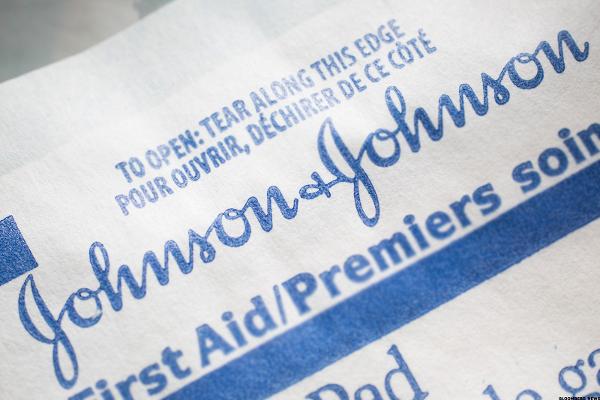 TO OPEN: TEAR ALONG THIS EDGE
POUR OUVRIR, DÉCHIRER DE CE CÔTÉ
Johnson & Johnson
First Aid/Premiers soin
Pad
de ga
BLOOMBERG NEWS